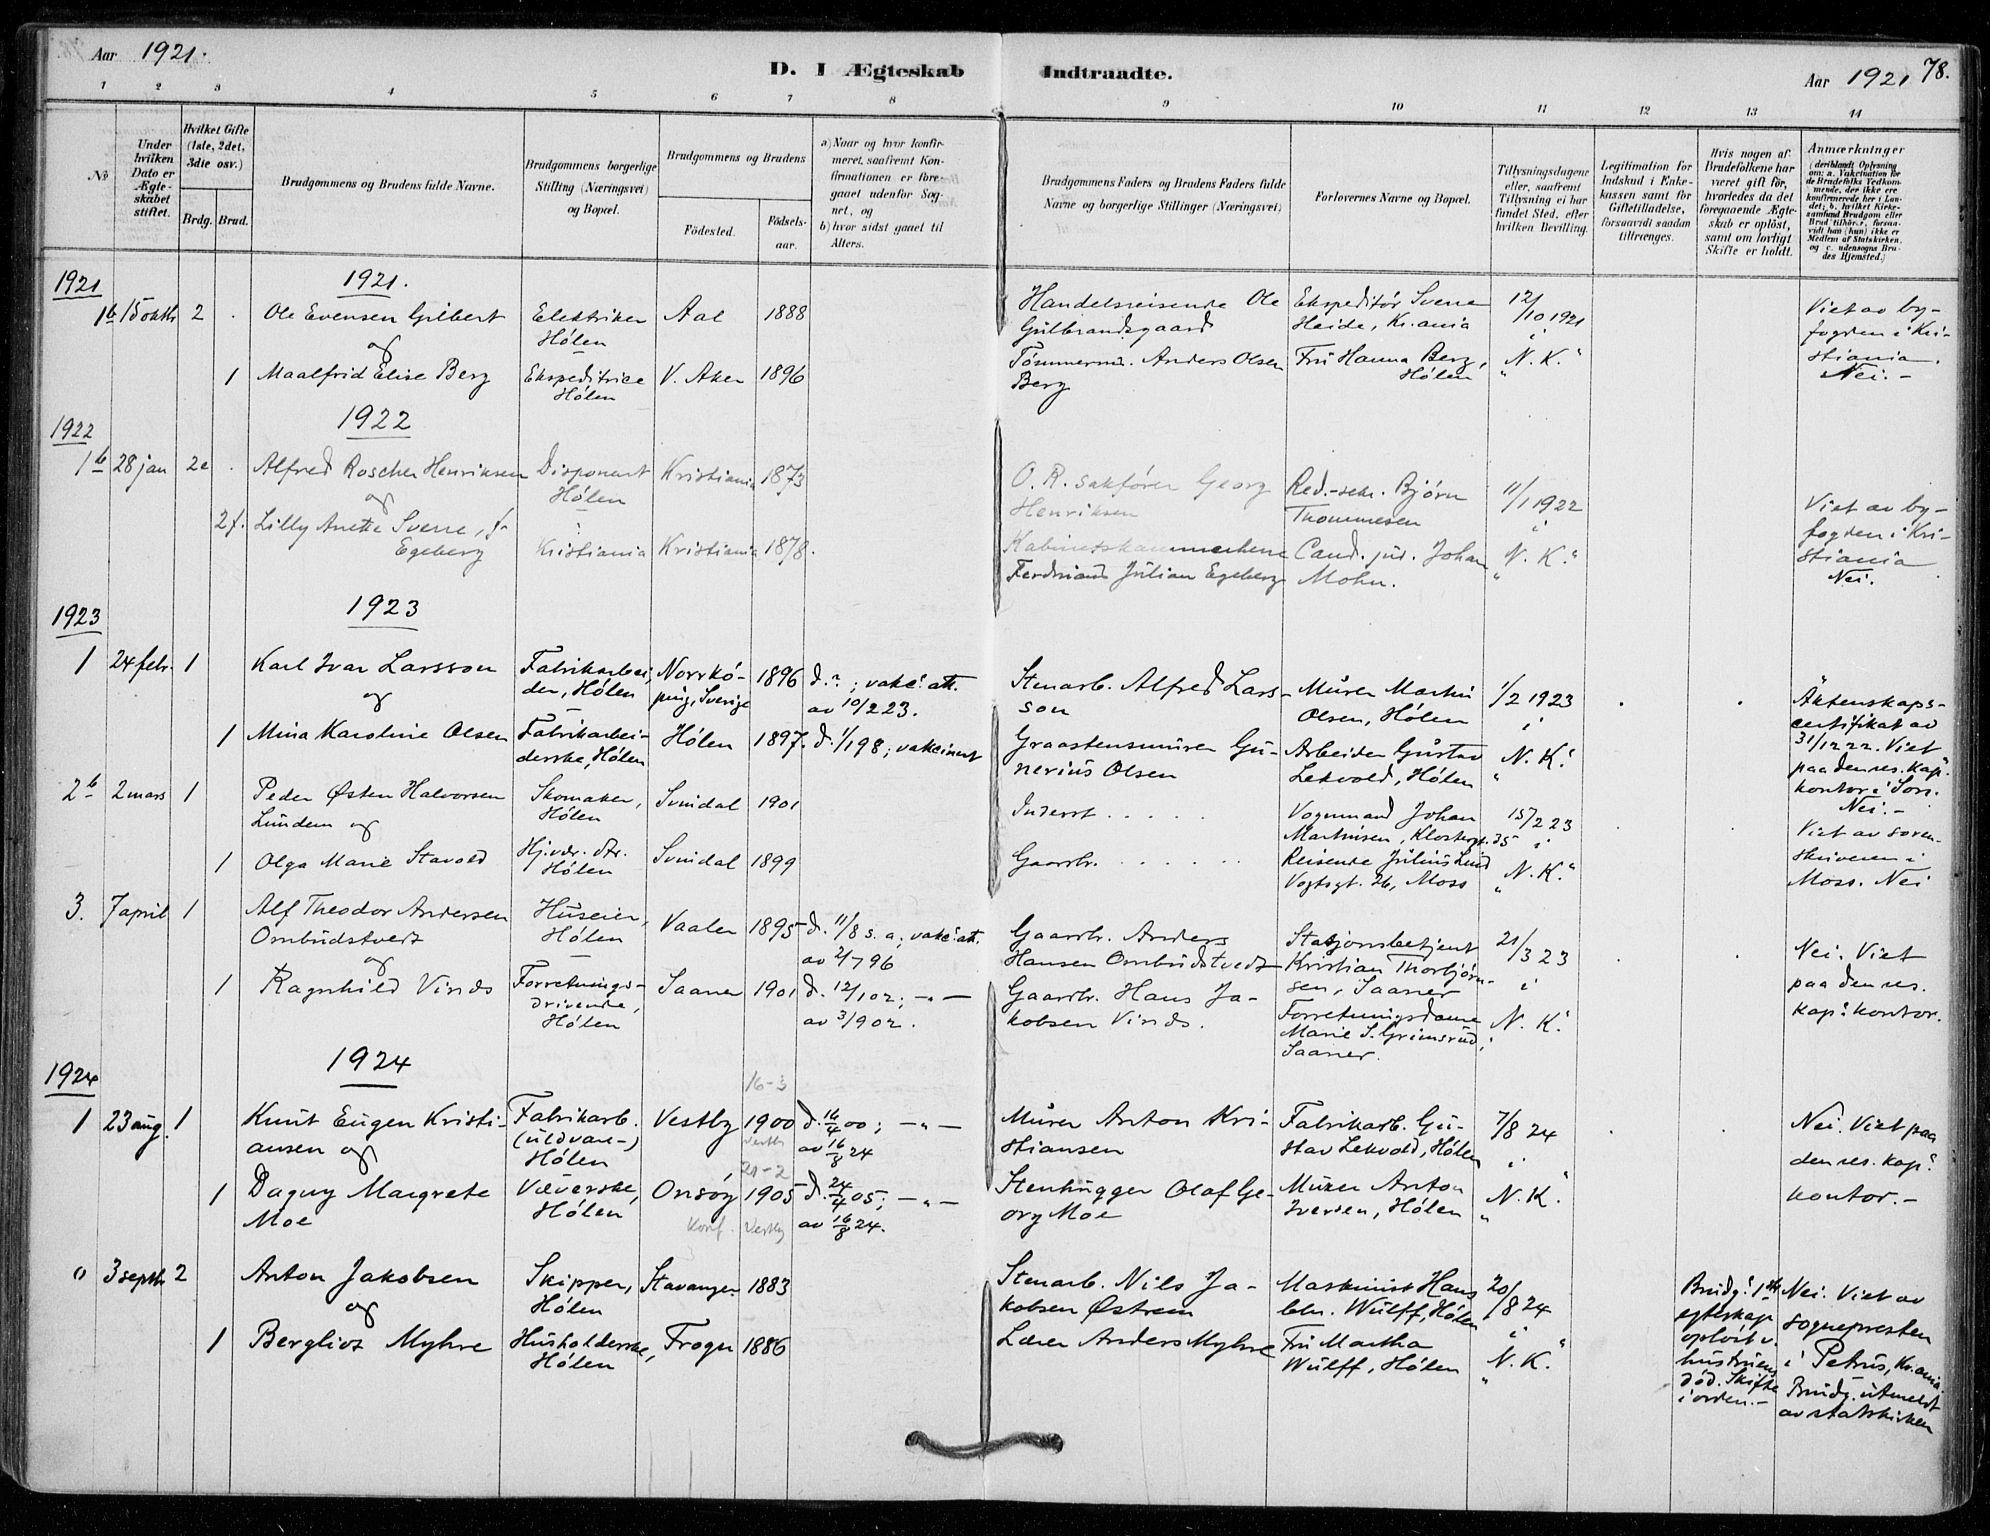 Aar 1921.
D. I Ægteskab Indtraadte.
Aar 1921 78.
1 2 3 4 5 6 7 8 9 10 11 12 13 14
No
Under hvilken Dato er Ægteskabet stiftet.
Hvilket Gifte (1ste, 2det, 3die osv.)
Brdg. Brud.
Brudgommens og Brudens fulde Navne.
Brudgommens borgerlige Stilling (Næringsvei) og Bopæl.
Brudgommens og Brudens
Fødested.
Fødselsaar.
a) Naar og hvor konfirmeret, saafremt Konfirmationen er foregaaet udenfor Sognet, og
b) hvor sidst gaaet til Alters.
Brudgommens Faders og Brudens Faders fulde Navne og borgerlige Stillinger (Næringsvei)
Forlovernes Navne og Bopæl.
Tillysningsdagene eller, saafremt Tillysning ei har fundet Sted, efter hvilken Bevilling.
Legitimation for Indskud i Enkekassen samt for Giftetilladelse, forsaavidt saadan tiltrænges.
Hvis nogen af Brudefolkene har været gift før, hvorledes da det foregaaende Ægteskab er opløst, samt om lovligt Skifte er holdt.
Anmærkninger
(deriblandt Oplysning om: a. Vakcination for de Brudefolks Vedkommende, der ikke ere konfirmerede her i Landet; b. hvilket Kirkesamfund Brudgom eller Brud tilhører, forsaavidt han (hun) ikke er Medlem af Statskirken, og c. udensogns Brudes Hjemsted.)
1921
1921.
1b 15 oktb 2 . Ole Evensen Gilbert
og
Elektriker Hølen
Aal 1888
Handelsreisende Ole Gulbrandsgaard
Ekspeditør Sverre Heide, Kr.ania
12/10 1921
i
Viet av byfogden i Kristiania.
Nei.-
1 Maalfrid Elise Berg
Ekspeditrice Hølen
V. Aker 1896
Tømmerm. Anders Olsen Berg
Fru Hanna Berg, Hølen
„N. K.“
1922
1922
1b 28 jan 2e . Alfred Roscher Henriksen
og
Disponent Hølen
Kristiania 1873
O. R. sakfører Georg Henriksen
Red.-sekr. Bjørn Thommesen
11/1 1922
i
Viet av byfogden i Kristiania
Nei.
2f. Lilly Anette Sverre, f. Egeberg
Kristiania Kristiania 1878.
Kabinetskammerherre Ferdinand Julian Egeberg
Cand. jur. Johan Mohn.
„N. K.“
1923
1923
1 24 febr. 1 Karl Ivar Larsson
og
Fabrikarbeider, Hølen
Norrköping, Sverige
1896 d. ? ; vakc. att. av 10/2 23.
Stenarb. Alfred Larsson
Murer Martin Olsen, Hølen
1/2 1923
i
. .
Äktenskapscertifikat av 31/12 22. Viet paa den res. kap.s kontor i Son.
Nei.-
1 Mina Karoline Olsen
Fabrikarbeiderske, Hølen
Hølen 1897. d. 1/1 98; vakcinert
Graastensmurer Gunerius Olsen
Arbeider Gustav Lekvold, Hølen
„N. K.“
2b 2 mars 1 Peder Østen Halvorsen Lundem og
Skomaker, Hølen
Svindal 1901
Inderst . . . . .
Vognmand Johan Martinsen, Klostergt. 35
15/2 23
i
. .
Viet av sorenskriveren i Moss. Nei
1 Olga Marie Stavold
Hj.vær. dtr. Hølen
Svindal 1899
Gaardbr. . . . . . .
Reisende Julius Lund Vogtsgt. 26, Moss
„N. K.“
3. 7 april 1 Alf Theodor Andersen Ombudstvedt
og
Huseier, Hølen
Vaaler 1895 d. 11/8 s. a; vakc. att. av 2/7 96
Gaardbr. Anders Hansen Ombudstvedt
Stasjonsbetjent Kristian Thorbjørnsen, Saaner
21/3 23
i
. .
Nei. Viet paa den res. kap.s kontor.
1 Ragnhild Vinds
Forretningsdrivende, Hølen
Saaner 1901 d. 12/1 02; -„- av 3/9 02.
Gaardbr. Hans Jakobsen Vinds.
Forretningsdame Marie S. Grimsrud, Saaner.
N. K.
1924
1924
16-3
1 23 aug. 1 Knut Eugen Kristiansen og
Fabrikarb. (uldvare-) Hølen
Vestby 1900 d. 16/4 00; -„- av 16/8 24
Vestby
Murer Anton Kristiansen
Fabrikarb. Gustav Lekvold, Hølen
7/8 24
i
. .
Nei. Viet paa den res. kap.s kontor.-
21-2
1 Dagny Margrete Moe
Væverske, Hølen
Onsøy 1905 d. 24/4 05; -„- av 16/8 24.
Konf. Vestby
Stenhugger Olaf Georg Moe
Murer Anton Iversen, Hølen
„N. K.“
0 3 septb 2 Anton Jakobsen
og
Skipper, Hølen
Stavanger 1883
Stenarb. Nils Jakobsen Østrem
Maskinist Hans Wulff, Hølen
20/8 24
i
Brudg.s 1ste egteskap opløst v. hustruens død. Skifte i orden.-
Nei. Viet av sognepresten i Petrus, Kr.ania. Brudg. utmeldt av statskirken
1 Bergliot Myhre
Husholderske, Hølen
Frogn 1886
Lærer Anders Myhre
Fru Martha Wulff, Hølen
„N. K.“